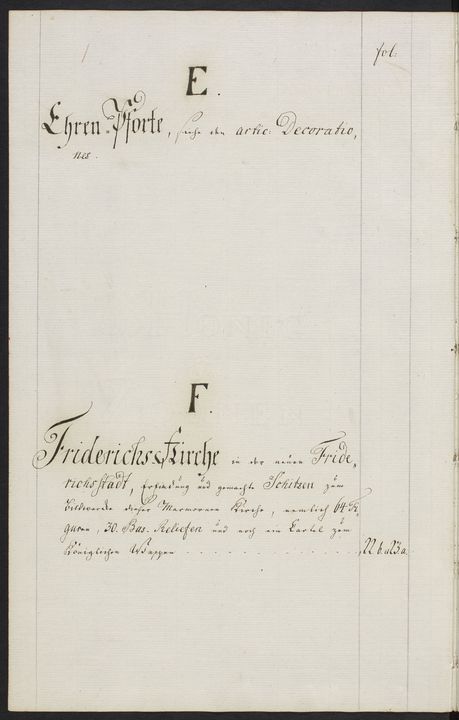 fol:
E.
Ehren-Pforte, siehe den artic: Decoratio,
nes.
F.
Friderichs Kirche in der neuen Fride,
richsstadt, Erfindung und gemachte Schitzen zum
bildwercke dieser Marmornen Kirche, nemlich 64 Fi,
guren, 30. Bas-Reliefen und noch ein Cartel zum
Königlichen Wappen . . . . . . . . . . . . . 22 b. u 23 a.